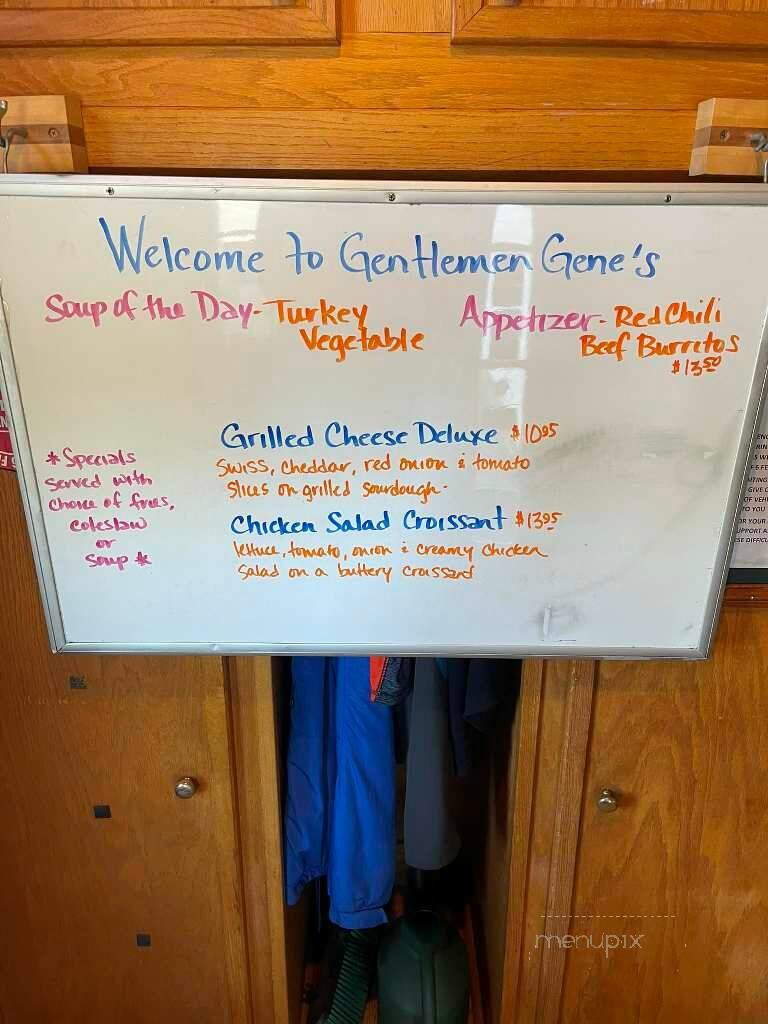 Welcome to Gentlemen Gene's
Soup of the Day - Turkey
Vegetable
Appetizer - Red Chili
Beef Burritos
$13.50
Grilled Cheese Deluxe $10.95
Swiss, cheddar, red onion & tomato
slices on grilled sourdough.
*Specials
served with
choice of fries,
coleslaw
or
soup *
Chicken Salad Croissant $13.95
lettuce, tomato, onion & creamy chicken
salad on a buttery croissant
menupix